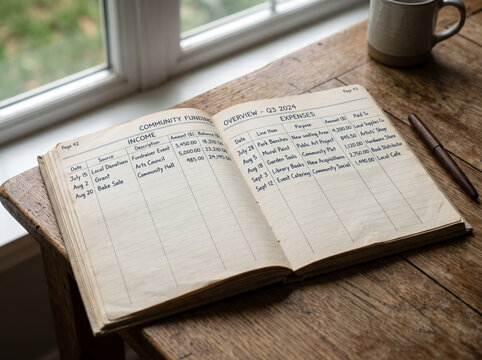 Page 42
COMMUNITY FUNDING OVERVIEW - Q3 2024
INCOME
Date Source Description Amount ($) Balance
July 15 Local Donations Fundraiser Event 3,450.00
Aug 2 Grant Arts Council 5,000.00
Aug 20 Bake Sale Community Hall 985.00
Page 43
EXPENSES
Date Line Item Purpose Amount ($) Paid To
July 28 Park Benches New seating Area 4,200.00 Local Supplies Co.
Aug 5 Mural Paint Public Art Project 845.50 Artists' Shop
Aug 18 Garden Tools Community Plot 1,120.00 Hardware Store
Sept 3 Library Books New Acquisitions 2,750.00 Book Distributor
Sept 12 Event Catering Community Social 1,490.00 Local Cafe